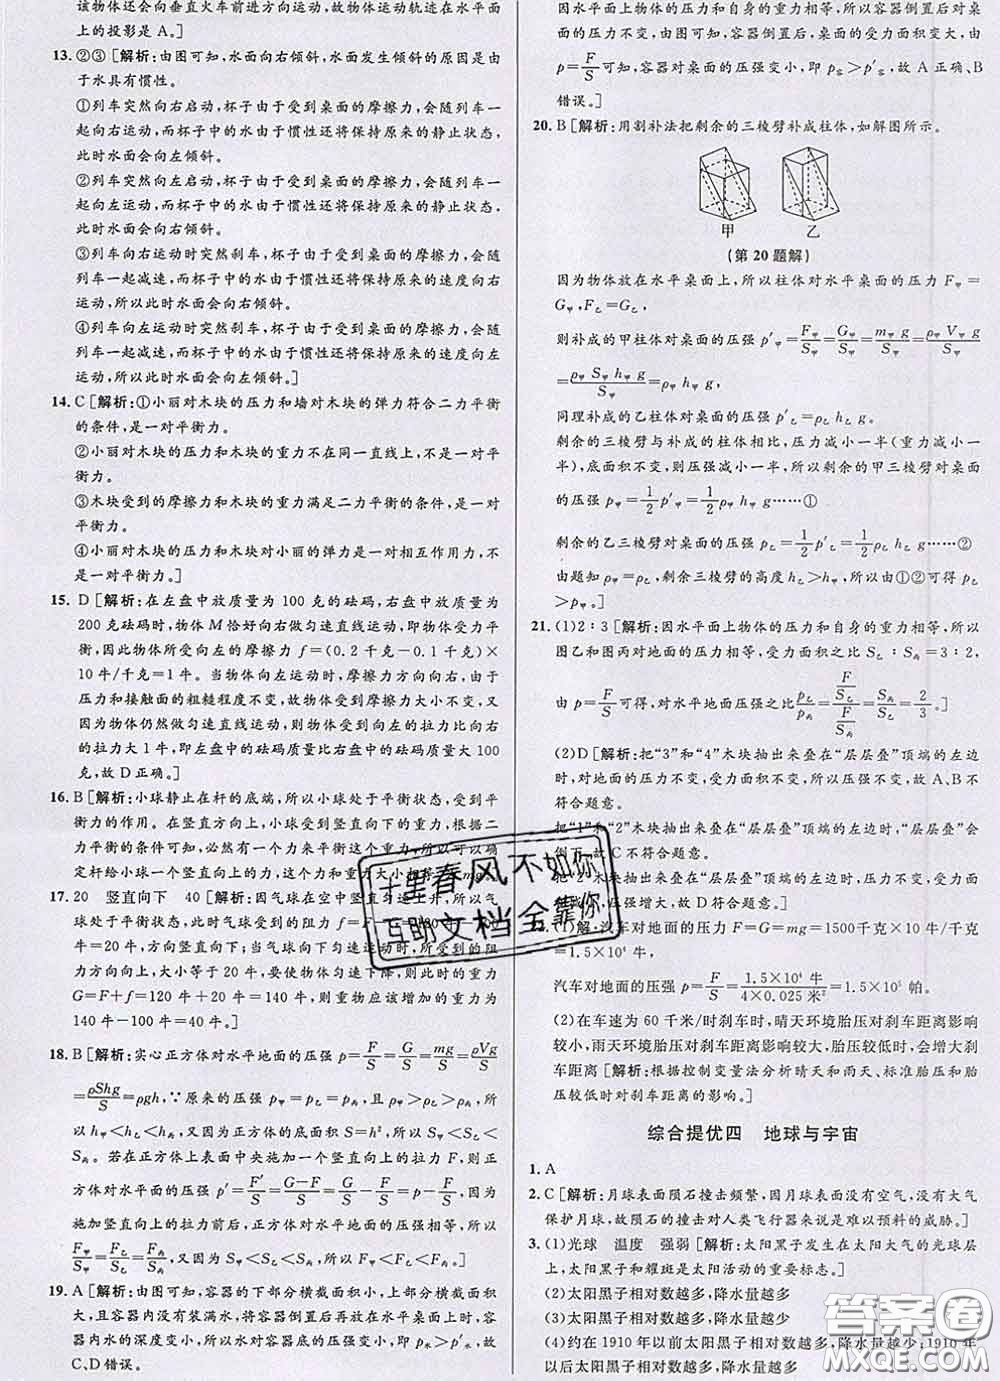 该物体还会向垂直火车前进方向运动,故物体运动轨迹在水平面
上的投影是 A。]
13. ②③ [解析:由图可知,水面向右倾斜,水面发生倾斜的原因是由
于水具有惯性。
①列车突然向右启动,杯子由于受到桌面的摩擦力,会随列车一
起向右运动,而杯子中的水由于惯性还将保持原来的静止状态,
此时水面会向左倾斜。
②列车突然向左启动,杯子由于受到桌面的摩擦力,会随列车一
起向左运动,而杯子中的水由于惯性还将保持原来的静止状态,
此时水面会向右倾斜。
③列车向右运动时突然刹车,杯子由于受到桌面的摩擦力,会随
列车一起减速,而杯子中的水由于惯性还将保持原来的速度向右
运动,所以此时水面会向右倾斜。
④列车向左运动时突然刹车,杯子由于受到桌面的摩擦力,会随
列车一起减速,而杯子中的水由于惯性还将保持原来的速度向左
运动,所以此时水面会向左倾斜。]
14. C [解析:①小丽对木块的压力和墙对木块的弹力符合二力平衡
的条件,是一对平衡力。
②小丽对木块的压力和木块的重力不在同一直线上,不是一对平
衡力。
③木块受到的摩擦力和木块的重力满足二力平衡的条件,是一对
平衡力。
④小丽对木块的压力和木块对小丽的弹力是一对相互作用力,不
是一对平衡力。]
15. D [解析:在左盘中放质量为 100 克的砝码,右盘中放质量为
200 克砝码时,物体 M 恰好向右做匀速直线运动,即物体受力平
衡,因此物体所受向左的摩擦力 f=(0.2 千克-0.1 千克)×
10 牛/千克=1 牛。当物体向左运动时,摩擦力方向向右,由于
压力和接触面的粗糙程度不变,故物体受到摩擦力大小不变,又
因为物体仍然做匀速直线运动,则物体受到向左的拉力比向右
的拉力大 1 牛,即左盘中的砝码质量比右盘中的砝码质量大 100
克,故 D 正确。]
16. B [解析:小球静止在杆的底端,所以小球处于平衡状态,受到平
衡力的作用。在竖直方向上,小球受到竖直向下的重力,根据二
力平衡的条件可知,必然有一个力来与小球的重力平衡,所以可以确
定杆给小球一个竖直向上的力,这个力和重力大小相等,mg。]
17. 20 竖直向下 40 [解析:因气球在空中竖直匀速上升,所以气
球处于平衡状态,此时气球受到的阻力 f=F-
牛=20 牛,方向竖直向下;当气球向下匀速运动时,所受到的阻
力方向向上,大小等于 20 牛,要使物体匀速下降,则此时的重力
G=F+f=120 牛+20 牛=140 牛,则重物应该增加的重力为
140 牛-100 牛=40 牛。]
18. B [解析:实心正方体对水平地面的压强 p=F/S=G/S=mg/S=ρVg/S
=ρShg/S=ρgh,∵原来的压强 p甲=p乙=p丙,且 ρ甲>ρ乙>ρ丙,所
以 h甲<h乙<h丙,又因为正方体的底面积 S=h²,所以 S甲<S乙<
S丙。若在正方体上表面中央施加一个竖直向上的拉力 F,则正
方体对水平面的压强 p=F′/S=G-F/S=G/S-F/S=p-F/S,因为
施加竖直向上的拉力前后,正方体对水平地面的压强相等,所
以 F甲/S甲=F乙/S乙=F丙/S丙,又因为 S甲<S乙<S丙,所以 F甲<F乙<F丙。]
19. A [解析:由图可知,容器的下部分横截面积小,上部分横截面积
大,且容器内没有装满水,将容器倒置后再放在水平桌面上时,容器中
水的深度变小,所以水对容器底的压强变小,即 p水>p′水。故
C、D 错误。
因水平面上物体的压力和自身的重力相等,所以容器倒置后对
桌面的压力不变,但容器倒置后,桌面的受力面积变大,由
p=F/S可知,容器对桌面的压强变小,即 p容>p′容,故 A 正确、B
错误。]
20. B [解析:用割补法把剩余的三棱劈补成柱体,如解图所示。
甲 乙
(第 20 题解)
因为物体放在水平桌面上,所以柱体对水平桌面的压力 F甲=
G甲,F乙=G乙,
则补成的甲柱体对桌面的压强 p′甲=F甲/S甲=G甲/S甲=m甲 g/S甲=ρ甲 V甲 g/S甲
=ρ甲 S甲 h甲 g/S甲=ρ甲 h甲 g,
同理补成的乙柱体对桌面的压强 p′乙=ρ乙 h乙 g,
剩余的三棱劈与补成的柱体相比,压力减小一半(重力减小一
半),底面积不变,则压强减小一半,所以剩余的甲三棱劈对桌面
的压强 p甲=1/2 p′甲=1/2 ρ甲 h甲 g……①
剩余的乙三棱劈对桌面的压强 p乙=1/2 p′乙=1/2 ρ乙 h乙 g……②
由题知 ρ乙>ρ甲,剩余三棱劈的高度 h乙>h甲,所以由①②可得 p乙
>p甲。]
21. (1)2∶3 [解析:因水平面上物体的压力和自身的重力相等,所以
图乙和图丙对地面的压力相等,受力面积之比 S乙∶S丙=3∶2,
由 p=F/S可知,对水平地面压强之比 p乙/p丙=F/S乙/F/S丙=S丙/S乙=2/3。]
(2)D [解析:把“3”和“4”木块抽出来叠在“层层叠”顶端的左边
时,对地面的压力不变,受力面积不变,所以压强不变,故 A、B 不
符合题意。
把“1”和“2”木块抽出来叠在“层层叠”顶端的左边时,“层层叠”会
倒下,故 C 不符合题意。
把“2”木块抽出来叠在“层层叠”顶端的左边时,压力不变,受力面
积减小,压强增大,故 D 符合题意。]
22. (1)解:汽车对地面的压力 F=G=mg=1500千克×10 牛/千克
=1.5×10⁴牛,
汽车对地面的压强 p=F/S=1.5×10⁴ 牛/4×0.025 米²=1.5×10⁵ 帕。
(2)在车速为 60 千米/时刹车时,晴天环境胎压对刹车距离影响
较小,雨天环境胎压对刹车距离影响较大,胎压较低时,会增大刹
车距离 [解析:根据控制变量法分析晴天和雨天、标准胎压和胎
压较低时对刹车距离的影响。]
综合提优四 地球与宇宙
1. A
2. C [解析:月球表面陨石撞击频繁,因月球表面没有空气,没有大气
保护月球,故陨石的撞击对人类飞行器来说是难以抗拒的威胁。]
3. (1)光球 温度 强弱 [解析:太阳黑子发生在太阳大气的光球层
上,太阳黑子和耀斑是太阳活动的重要标志。]
(2)太阳黑子相对数越多,降水量越多
(3)太阳黑子相对数越多,降水量越多
(4)约在 1910 年以前太阳黑子相对数越多,降水量越少;1910 年
以后太阳黑子相对数越多,降水量越多
十里春风不如你
互助文档全靠你
答案圈
MXQE.COM